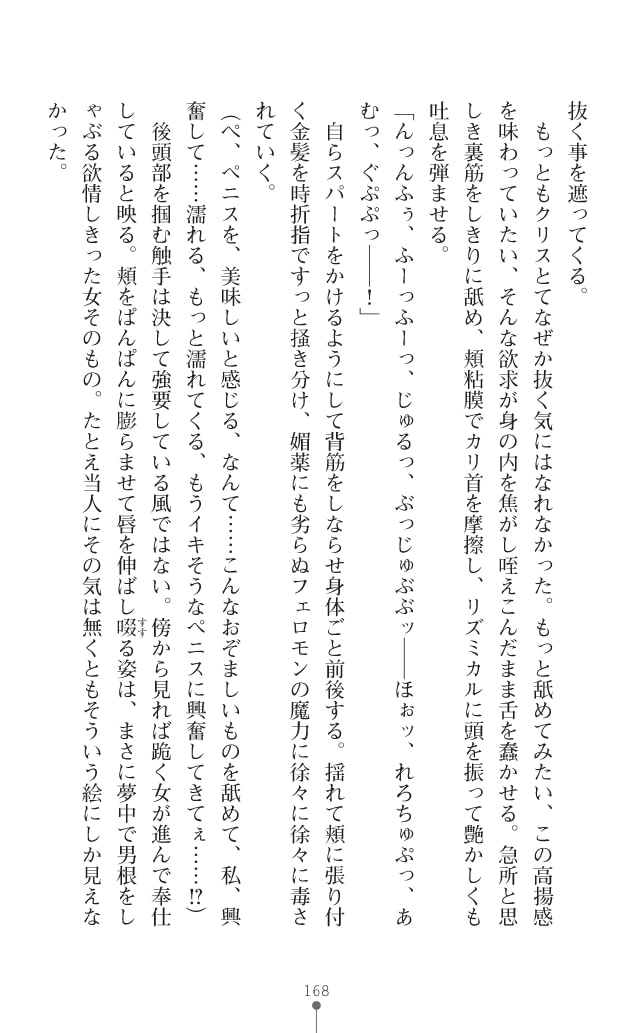 抜く事を遮ってくる。
　もっともクリスとてなぜか抜く気にはなれなかった。もっと舐めてみたい、この高揚感
を味わっていたい、そんな欲求が身の内を焦がし咥えこんだまま舌を蠢かせる。急所と思
しき裏筋をしきりに舐め、頬粘膜でカリ首を摩擦し、リズミカルに頭を振って艶かしくも
吐息を弾ませる。
「んっんふぅ、ふーっふーっ、じゅるっ、ぶっじゅぶぶッ――ほぉッ、れろちゅぷっ、あ
むっ、ぐぷぷっ――！」
　自らスパートをかけるようにして背筋をしならせ身体ごと前後する。揺れて頬に張り付
く金髪を時折指ですっと掻き分け、媚薬にも劣らぬフェロモンの魔力に徐々に徐々に毒さ
れていく。
（ペ、ペニスを、美味しいと感じる、なんて……こんなおぞましいものを舐めて、私、興
奮して……濡れる、もっと濡れてくる、もうイキそうなペニスに興奮してきてぇ……!?）
　後頭部を掴む触手は決して強要している風ではない。傍から見れば跪く女が進んで奉仕
していると映る。頬をぱんぱんに膨らませて唇を伸ばし啜る姿は、まさに夢中で男根をし
すす
ゃぶる欲情しきった女そのもの。たとえ当人にその気は無くともそういう絵にしか見えな
かった。
168